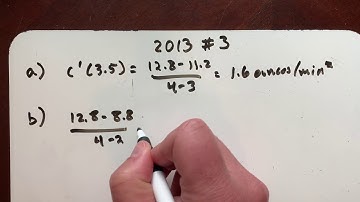 2013 #3
a) C'(3.5) = 12.8 - 11.2 / 4 - 3 = 1.6 ounces/min
b) 12.8 - 8.8 / 4 - 2